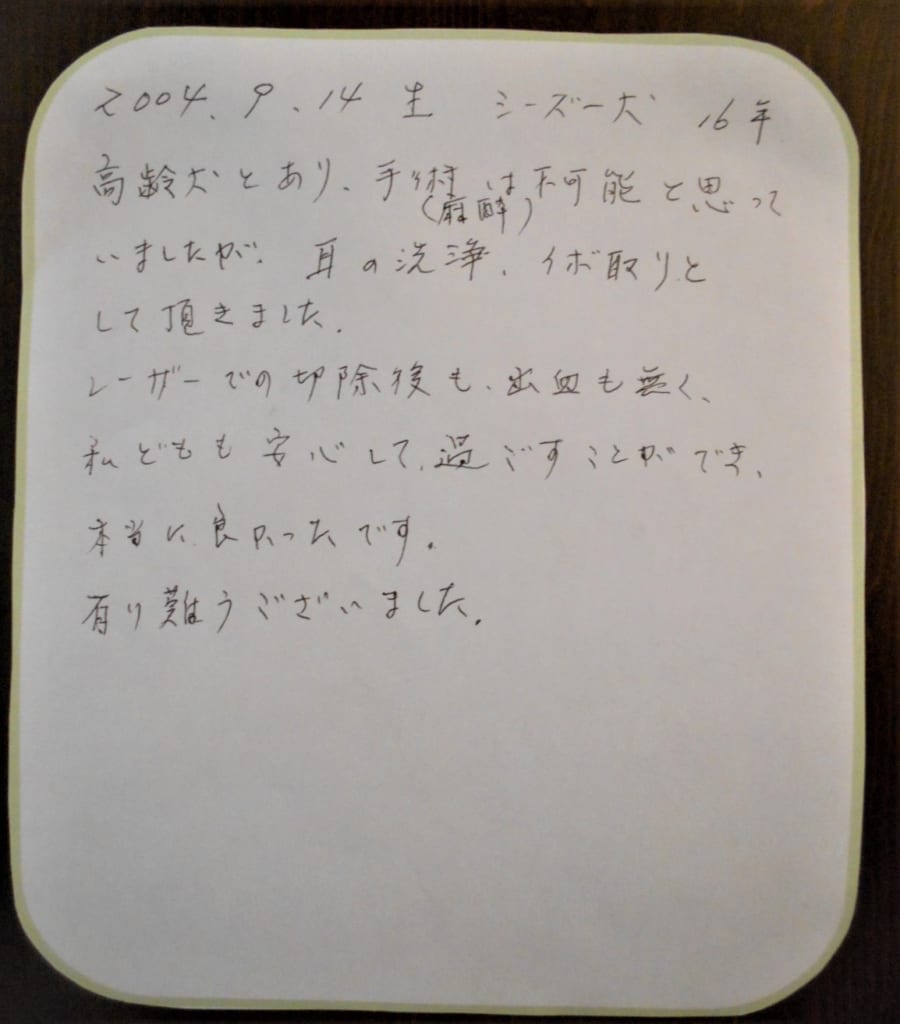 2004.9.14 生 シーズー犬 16年
高齢犬とあり、手術は不可能と思って
(麻酔)
いましたが、耳の洗浄、イボ取りと
して頂きました.
レーザーでの切除後も、出血も無く、
私どもも安心して、過ごすことができ、
本当に良かったです。
有り難うございました。